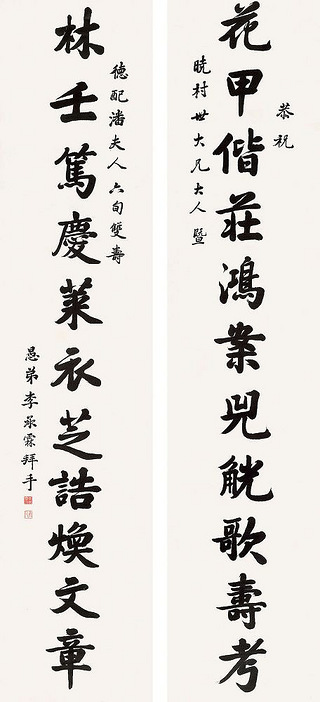 恭祝
花甲偕莊鴻案兕觥歌壽考
曉村世大兄大人暨
德配潘夫人六旬雙壽
林壬篤慶萊衣芝誥煥文章
愚弟李承霖拜手